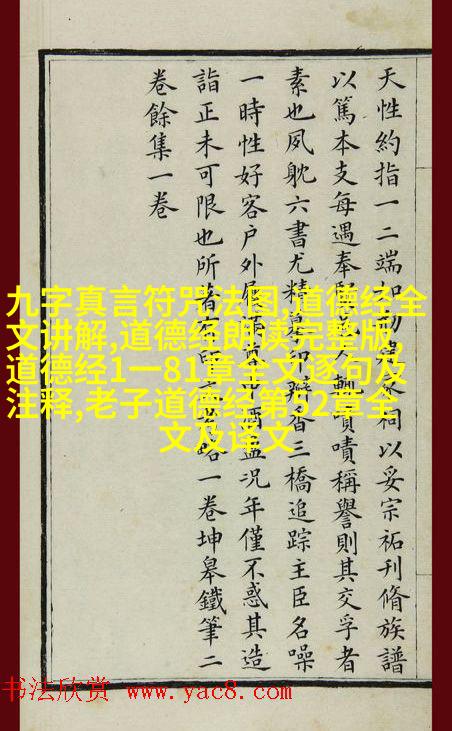 天性約指一二端如建祠以妥宗祏刊脩族譜
以篤本支每遇奉人輒嘖嘖稱譽則其交孚者
素也夙躭六書尤精印香三橋追踪主臣名噪
一時性好客户外況年僅不惑其造
詣正未可限也所著印略一卷坤皋鐵筆二
卷餘集一卷
九字真言符咒法图,道德经全
文讲解,道德经朗读完整版,
道德经1一81章全文逐句及
注释,老子道德经第52章全
文及译文
书法欣赏 www.yac8.com